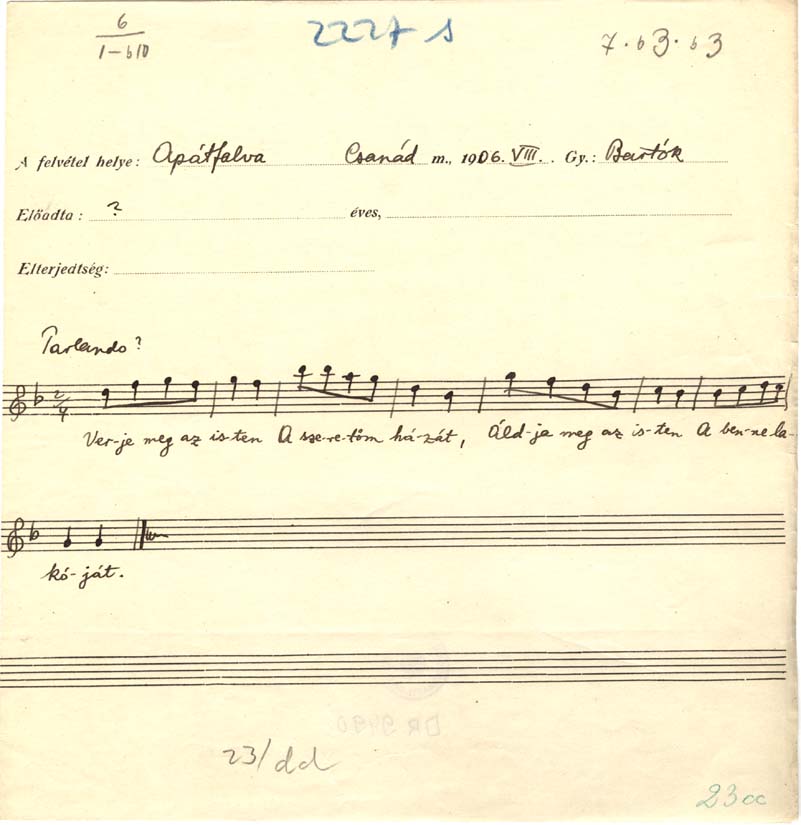 6
1-b10
2227 s
7 · b3 · b3
A felvétel helye: Apátfalva Csanád m., 1906. VIII. Gy.: Bartók
Előadta: ? éves,
Elterjedtség:
Parlando?
2/4
Ver-je meg az is-ten A sze-re-tőm há-zát, Áld-ja meg az is-ten A ben-ne la-
kó-ját.
DR 9490
23/dd
23cc